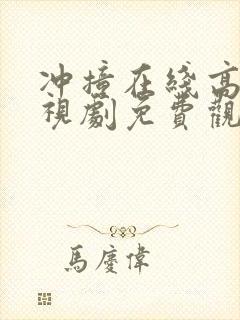 冲撞在綫高
視劇免費觀
馬慶偉